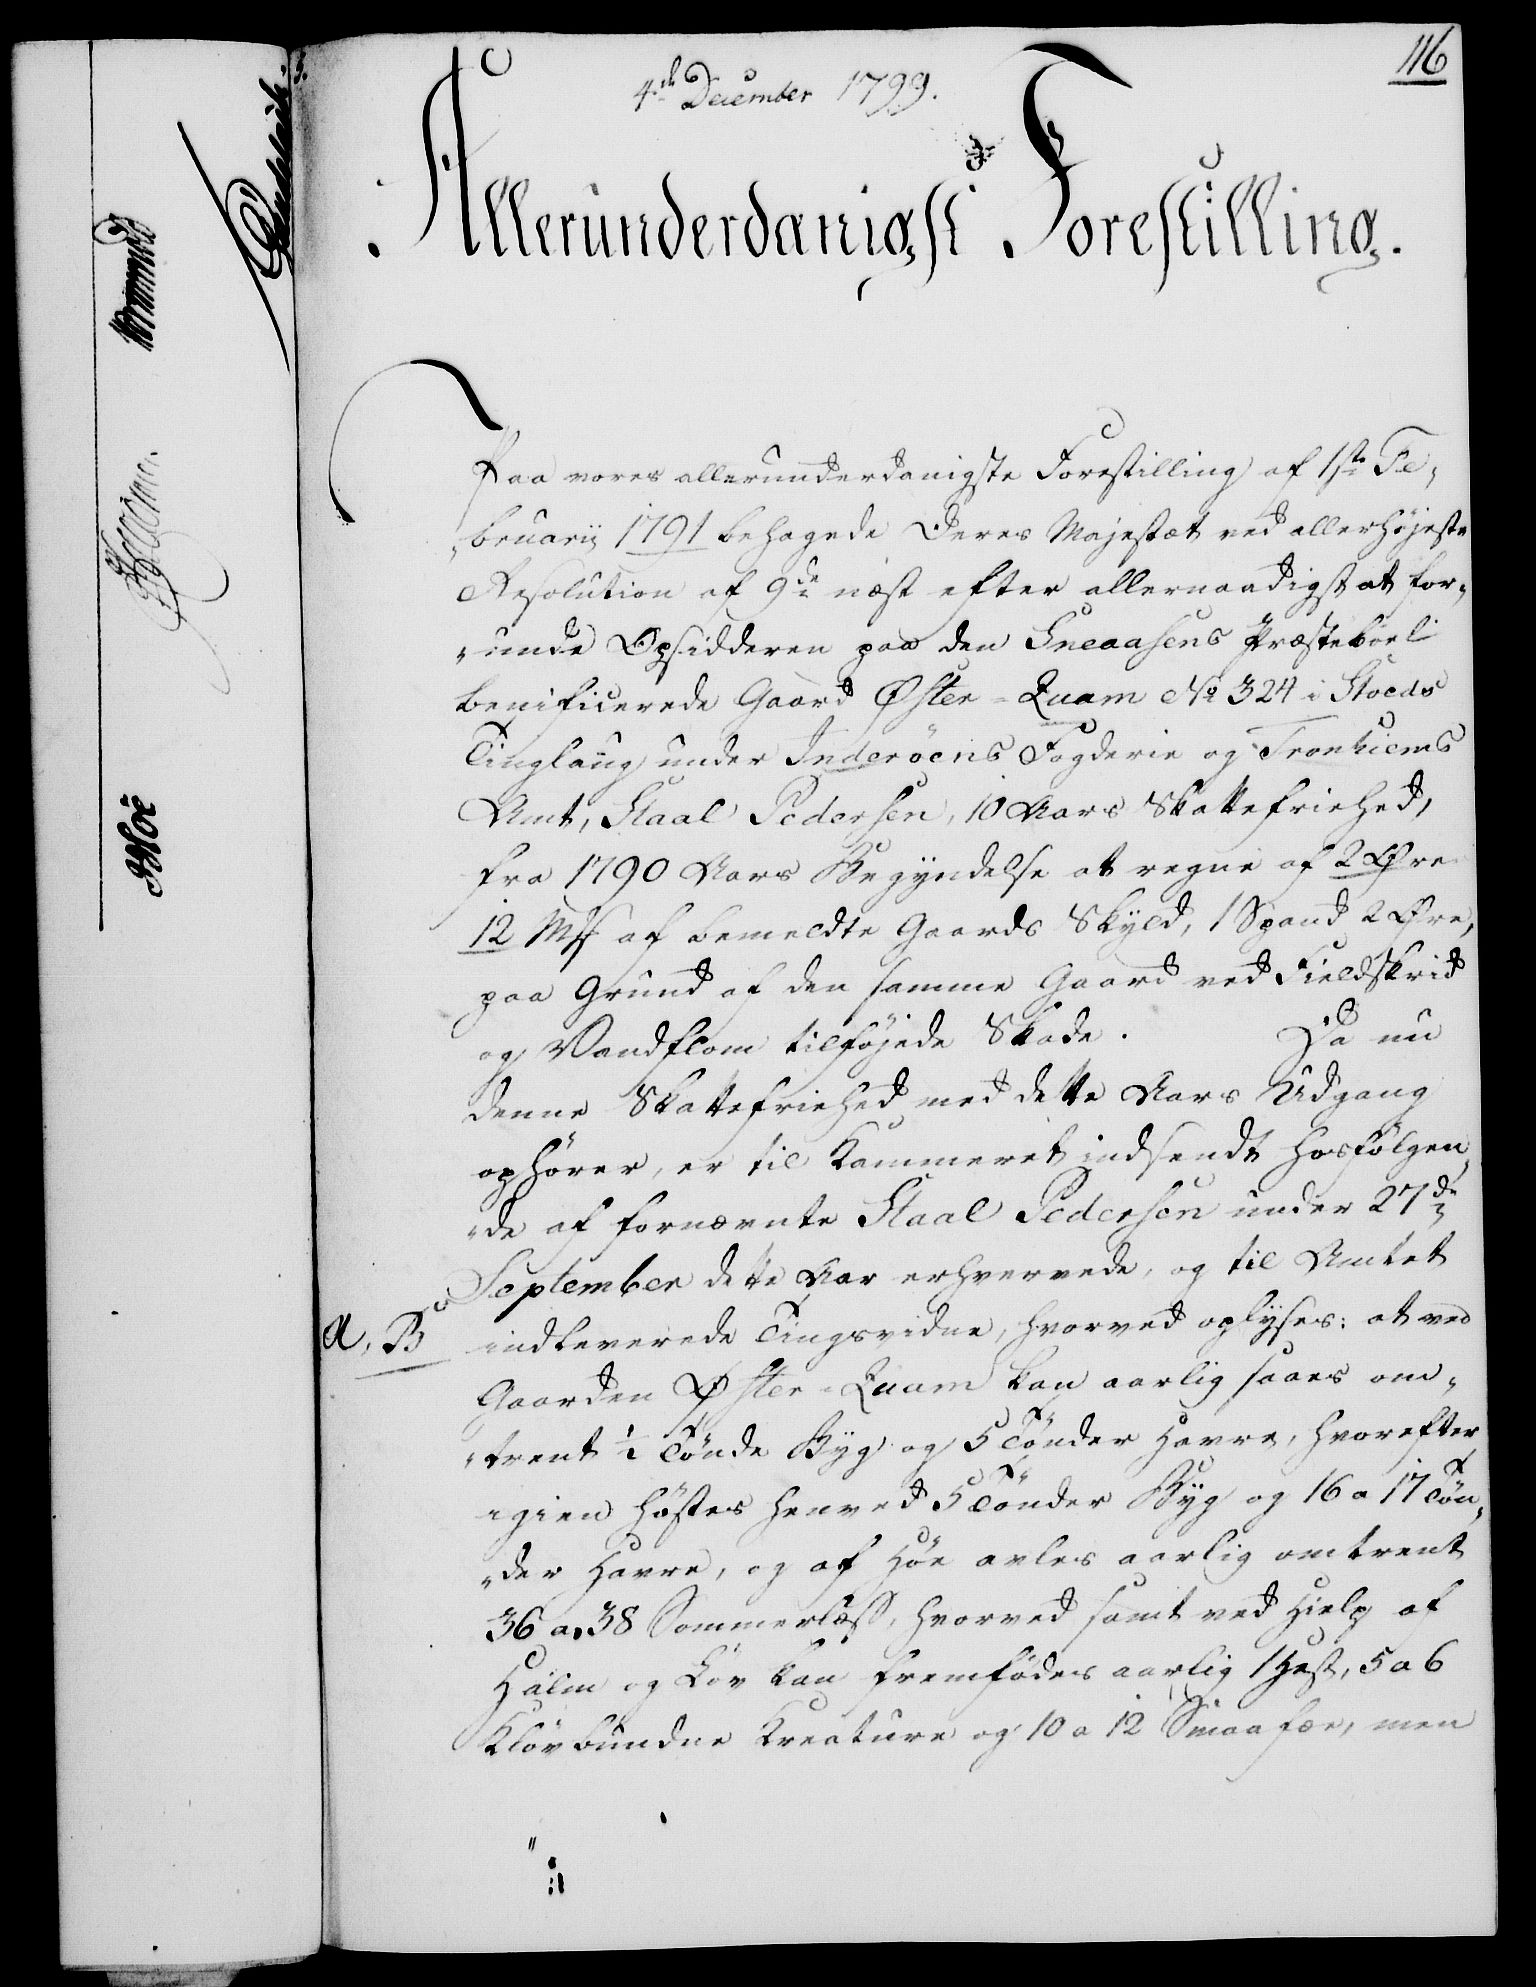 116
4de December 1799.
Allerunderdanigst Forestilling.
Paa vores allerunderdanigste Forestilling af 1ste Fe„
„bruarij 1791 behagede Deres Majestæt ved allerhøjeste
Resolution af 9de næst efter allernaadigst at for„
„unde Opsidderen paa den Sneaasens Præsteboel
benificerede Gaard Øster-Quam No 324 i Stoeds
Tinglaug under Inderöens Fogderie og Tronhiems
Amt, Staal Pedersen, 10 Aars Skattefriehed,
fra 1790 Aars Begyndelse at regne af 2 Øre
12 Mß af bemeldte Gaards Skyld, 1 Spand 2 Øre,
paa Grund af den samme Gaard ved Fieldskrid
og Vandflom tilföjede Skade. Da nu
denne Skattefriehed med dette Aars Udgang
ophörer, er til Kammeret indsendt hosfölgen„
„de af fornævnte Staal Pedersen under 27de
September dette Aar erhvervede, og til Amtet
A, B
indleverede Tingsvidne, hvorved oplyses: at ved
Gaarden Øster-Quam kan aarlig saaes om„
„trent ½ Tönde Byg og 5 Tönder Havre, hvorefter
igien höstes henved 5 Tönder Byg og 16 a 17 Tön„
„der Havre, og af Höe avles aarlig omtrent
36 a 38 Sommerlæss, hvorved samt ved Hielp af
Halm og Löv kan fremfödes aarlig 1 Hest, 5 a 6
Klövbundne Kreature og 10 a 12 Smaafæe, men